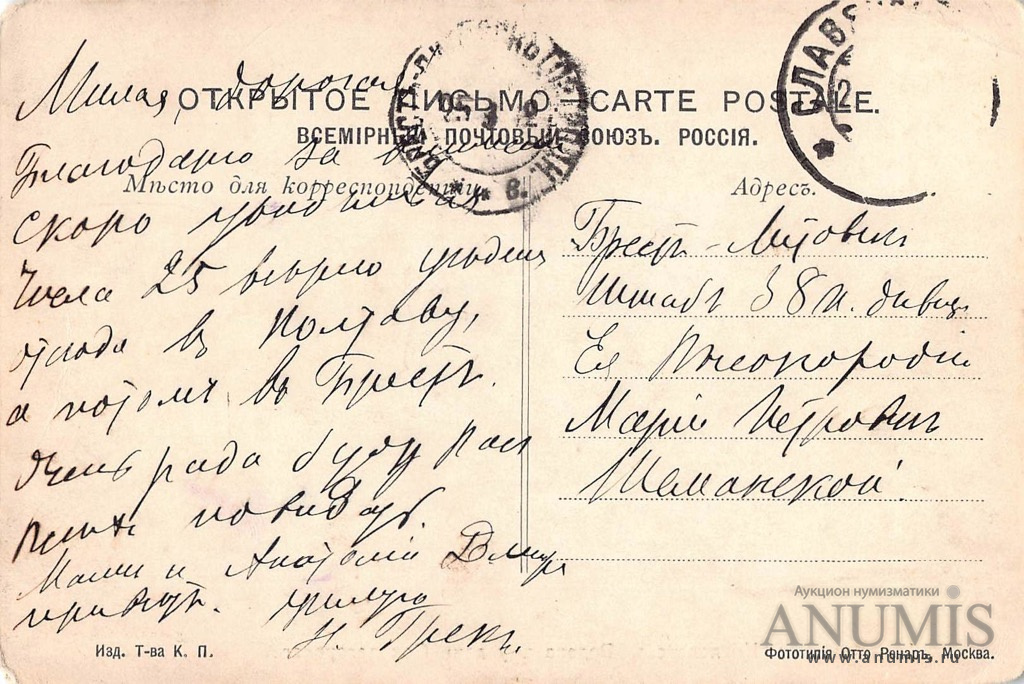 ОТКРЫТОЕ ПИСЬМО. CARTE POSTALE.
ВСЕМІРНЫЙ ПОЧТОВЫЙ СОЮЗЪ. РОССІЯ.
Мѣсто для корреспонденціи
Адресъ.
Милая, дорогая
Благодарю за
скоро увидимся
Числа 25 уѣдем
отсюда въ Полтаву,
а потомъ въ Брестъ.
Очень рада буду
повидать.
Мама и Анатолій
привѣтъ. Целую
Н. Грекъ.
Брестъ-Литовскъ
Штабъ 38 п. дивиз
Ея Высокородію
Маріи Петровнѣ
Шеманской.
БРЕСТЪ
СЛАВЯ
Изд. Т-ва К. П.
Фототипія Отто Ренаръ, Москва.
Аукцион нумизматики
ANUMIS
www.anumis.ru